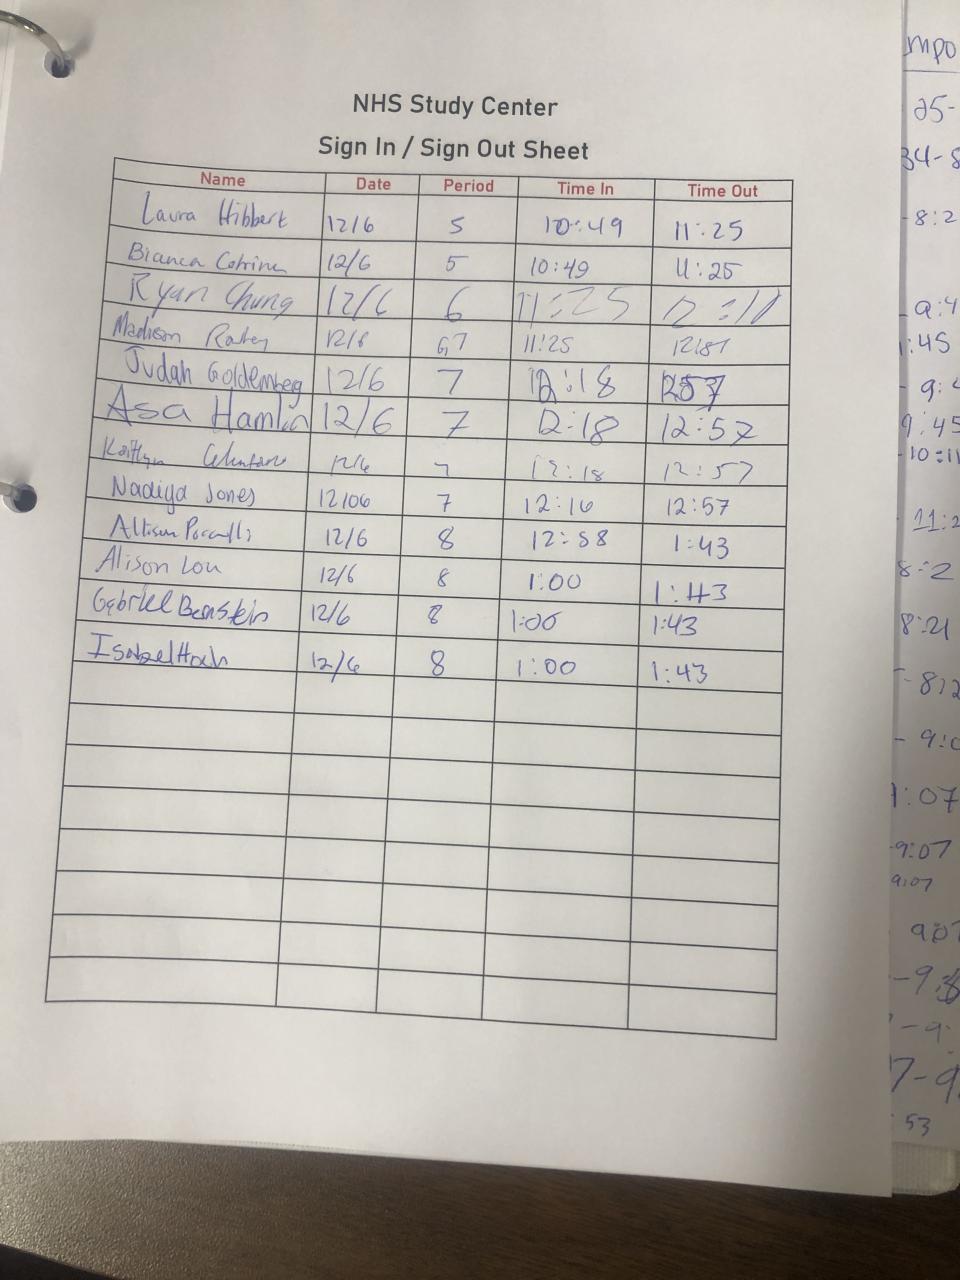 NHS Study Center
Sign In / Sign Out Sheet
Name Date Period Time In Time Out
Laura Hibbert 12/6 5 10:49 11:25
Bianca 12/6 5 10:49 11:25
Ryan Chung 12/6 6 11:25 12:11
Madison 12/6 6,7 11:25
Judah Goldemberg 12/6 7 12:18 1257
Asa Hamlin 12/6 7 12:18 12:57
Kaitlyn 12/6 7 12:18 12:57
Nadiya Jones 12/06 7 12:16 12:57
Allison 12/6 8 12:58 1:43
Alison Lou 12/6 8 1:00 1:43
Gabriel Bernstein 12/6 8 1:00 1:43
Isabel 12/6 8 1:00 1:43
mpo
25-
34-8
-8:2
9:4
:45
- 9:4
9:45
-10:11
11:2
8:2
8:21
-812
- 9:0
1:07
-9:07
9:07
907
-9:
-9
7-9
53